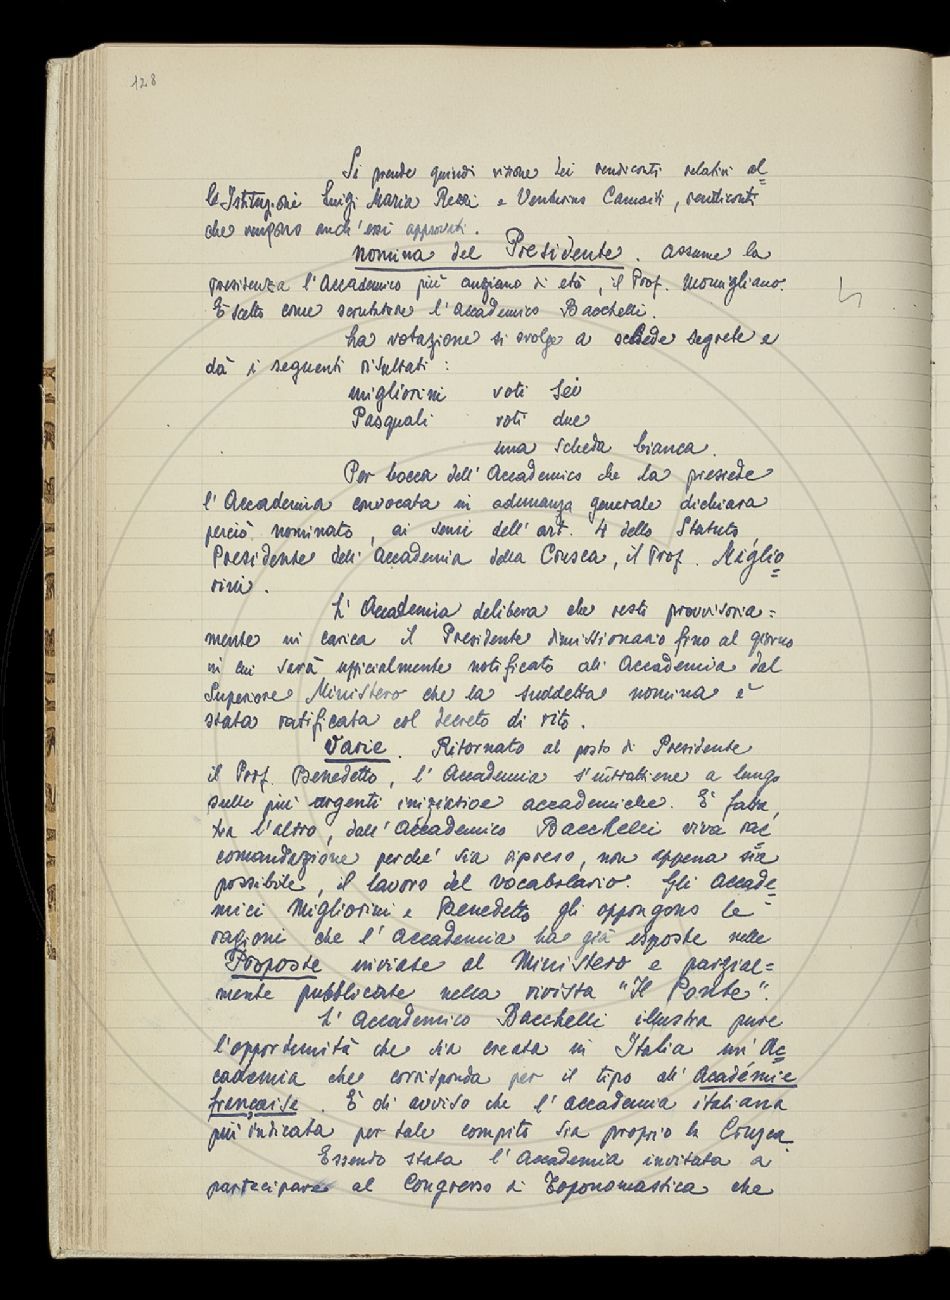 128
Si prende quindi visione dei rendiconti relativi al=
le Istituzioni Luigi Maria Rezzi e Venturino Camaiti, rendiconti
che vengono anch'essi approvati.
Nomina del Presidente. Assume la
presidenza l'Accademico più anziano di età, il Prof. Momigliano.
È scelto come scrutatore l'Accademico Bacchelli.
La votazione si svolge a schede segrete e
dà i seguenti risultati:
Migliorini voti sei
Pasquali voti due
una scheda bianca.
Per bocca dell'Accademico che la presiede
l'Accademia convocata in adunanza generale dichiara
perciò nominato, ai sensi dell'art. 4 dello Statuto
Presidente dell'Accademia della Crusca, il Prof. Miglio=
rini.
L'Accademia delibera che resti provvisoria=
mente in carica il Presidente dimissionario fino al giorno
in cui sarà ufficialmente notificato all'Accademia dal
Superiore Ministero che la suddetta nomina è
stata ratificata col decreto di rito.
Varie. Ritornato al posto di Presidente
il Prof. Benedetto, l'Accademia s'intrattiene a lungo
sulle più urgenti iniziative accademiche. È fatta,
tra l'altro, dall'Accademico Bacchelli viva rac=
comandazione perché sia ripreso, non appena sia
possibile, il lavoro del Vocabolario. Gli Accade=
mici Migliorini e Benedetto gli oppongono le
ragioni che l'Accademia ha già esposte nelle
Proposte inviate al Ministero e parzial=
mente pubblicate nella rivista "Il Ponte".
L'Accademico Bacchelli illustra pure
l'opportunità che sia creata in Italia un'Ac=
cademia che corrisponda per il tipo all'Académie
française. È di avviso che l'Accademia italiana
più indicata per tale compito sia proprio la Crusca.
Essendo stata l'Accademia invitata a
partecipare al Congresso di Toponomastica che